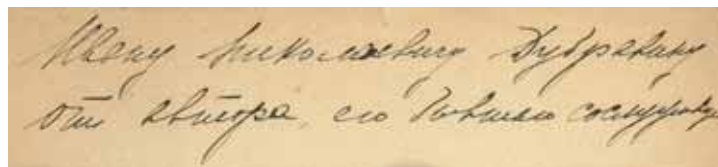 Ивану Николаевичу Дубравину
от автора, его бывшего сослуживца